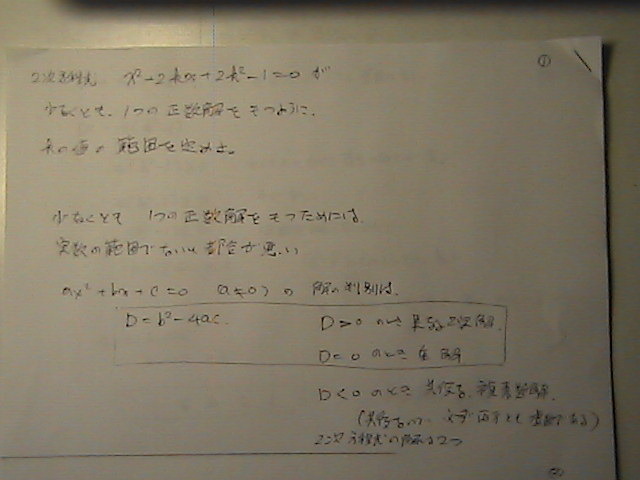 ①
2次方程式 x²-2kx+2k²-1=0 が
少なくとも、1つの正数解をもつように、
kの値の範囲を定めよ。
少なくとも 1つの正数解をもつためには、
実数の範囲でないと都合が悪い
ax²+bx+c=0 (a≠0) の 解の判別は、
D=b²-4ac. D>0 のとき 異なる2実解.
D=0 のとき 重解
D<0 のとき 共役な、複素数解.
2次方程式の解は2つ